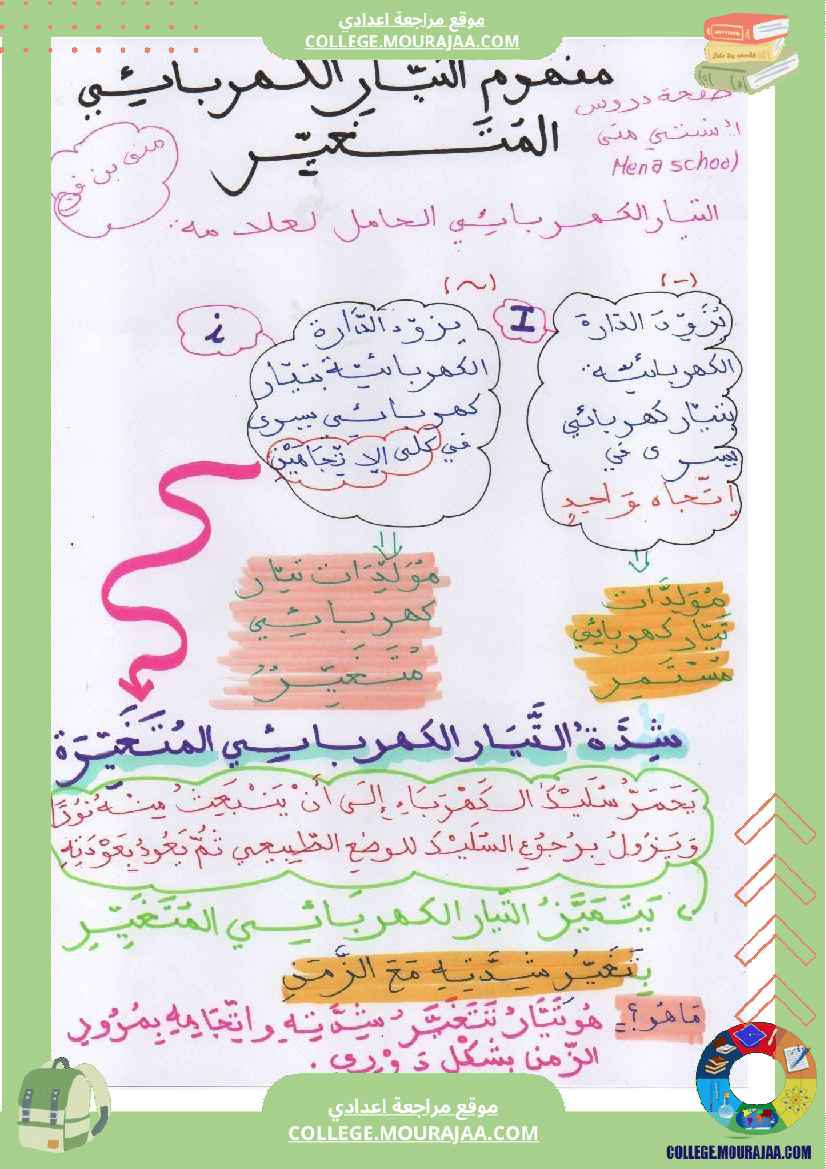 موقع مراجعة اعدادي
COLLEGE.MOURAJAA.COM
مفهوم التيّارِ الكهربائي
المُتَغيّر
صفحة دروس
الأستاذي منى
Mena school
منى بن فرج
التيار الكهربائي الحامل لعلامة:
(-)
(~)
I
تُزَوِّدَ الدّارة
الكهربائيّة
بتيّار كهربائي
يسرى في
إتّجاه وَاحِدٍ
i
يزوّد الدَّارة
الكهربائيّة بتيّار
كهربائي يسرى
في كلى الاتّجَاهَيْنِ
مُوَلِّدَات
تيّار كهربائي
مُسْتَمِر
مُوَلِّدَات تيّار
كهربائي
مُتَغَيّر
شِدَّةُ التَّيَار الكهربائي المُتَغَيّرَة
يَحْمَرُّ سَلِيكُ الكَهْرَبَاءِ إلَى أنْ يَنْبَعِثُ مِنْهُ نُورًا
وَيَزُولُ بِرُجُوعِ السّلِيكِ للوضعِ الطّبِيعي ثُمَّ يَعُودُ بِعَوْدَتِهِ
يَتَمَيَّزُ التّيار الكهربَائي المُتَغَيِّرِ
بِتَغَيّرُ شِدَّتِهِ مَعَ الزَّمَنِ
مَاهُو؟ هُوَ تَيَّارٌ تَتَغَيَّرُ شِدَّتِهِ وَاتّجَاهِهِ بِمُرُورِ
الزّمن بِشَكْلٍ دَوْرِي.
موقع مراجعة اعدادي
COLLEGE.MOURAJAA.COM
COLLEGE.MOURAJAA.COM